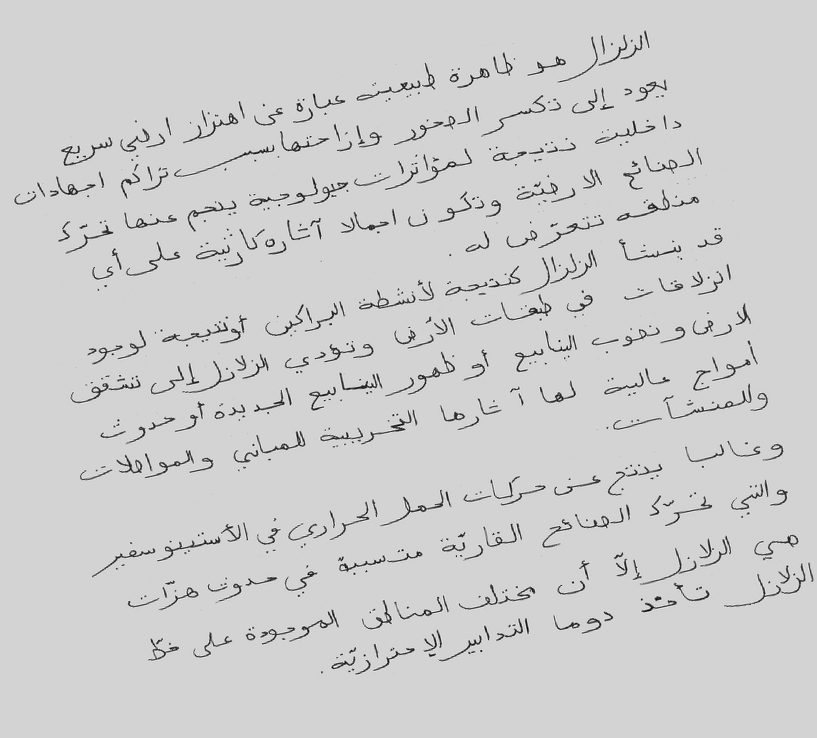 الزلزال هو ظاهرة طبيعية عبارة عن اهتزاز ارضي سريع
يعود إلى تكسر الصخور وإزاحتها بسبب تراكم اجهادات
داخلية نتيجة لمؤاثرات جيولوجية ينجم عنها تحرّك
الصفائح الارضيّة وتكون اجمالا آثاره كارثية على أي
منطقه تتعرّض له .
قد ينشأ الزلزال كنتيجة لأنشطة البراكين أو نتيجة لوجود
انزلاقات في طبقات الأرض وتؤدي الزلازل إلى تشقق
الارض ونضوب الينابيع أو ظهور الينابيع الجديدة أو حدوث
أمواج عالية لها آثارها التخريبية للمباني والمواصلات
والمنشآت.
وغالبا ينتج عن حركات الحمل الحراري في الأستينوسفير
والتي تحرّك الصفائح القاريّة متسببة في حدوث هزّات
هي الزلازل إلاّ أن مختلف المناطق الموجودة على خطّ
الزلازل تأخذ دوما التدابير الإحترازيّة.